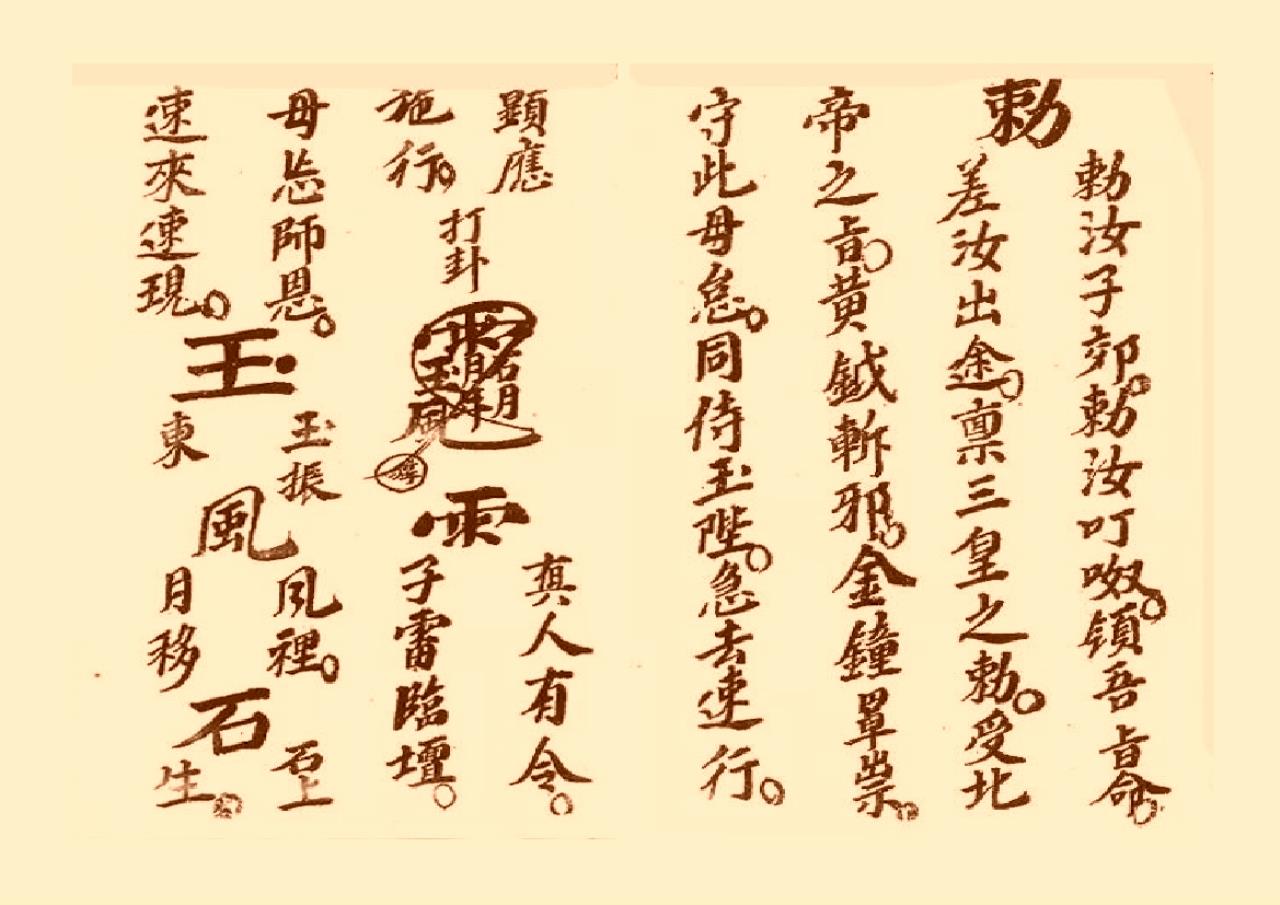 勅
勅汝子郊。勅汝叮呶。領吾旨命。
差汝出途。禀三皇之勅。受北
帝之旨。黄鉞斬邪。金鐘罩祟。
守此毋怠。同侍玉陛。急去速行。
顯應
施行。
打卦
雨
真人有令。
子雷臨壇。
毋忘師恩。
速來速現。
玉
玉振
東
風
凬裡。
月移
石
石上
生。